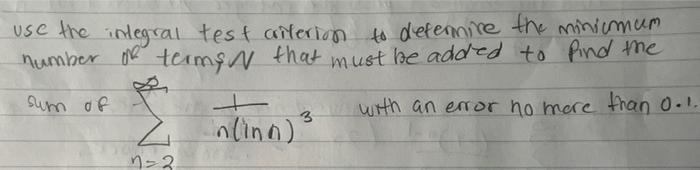 use the integral test criterion to determine the minimum
number of terms N that must be added to find the
sum of ∞ ∑ n=2 1/n(ln n)^3 with an error no more than 0.1.